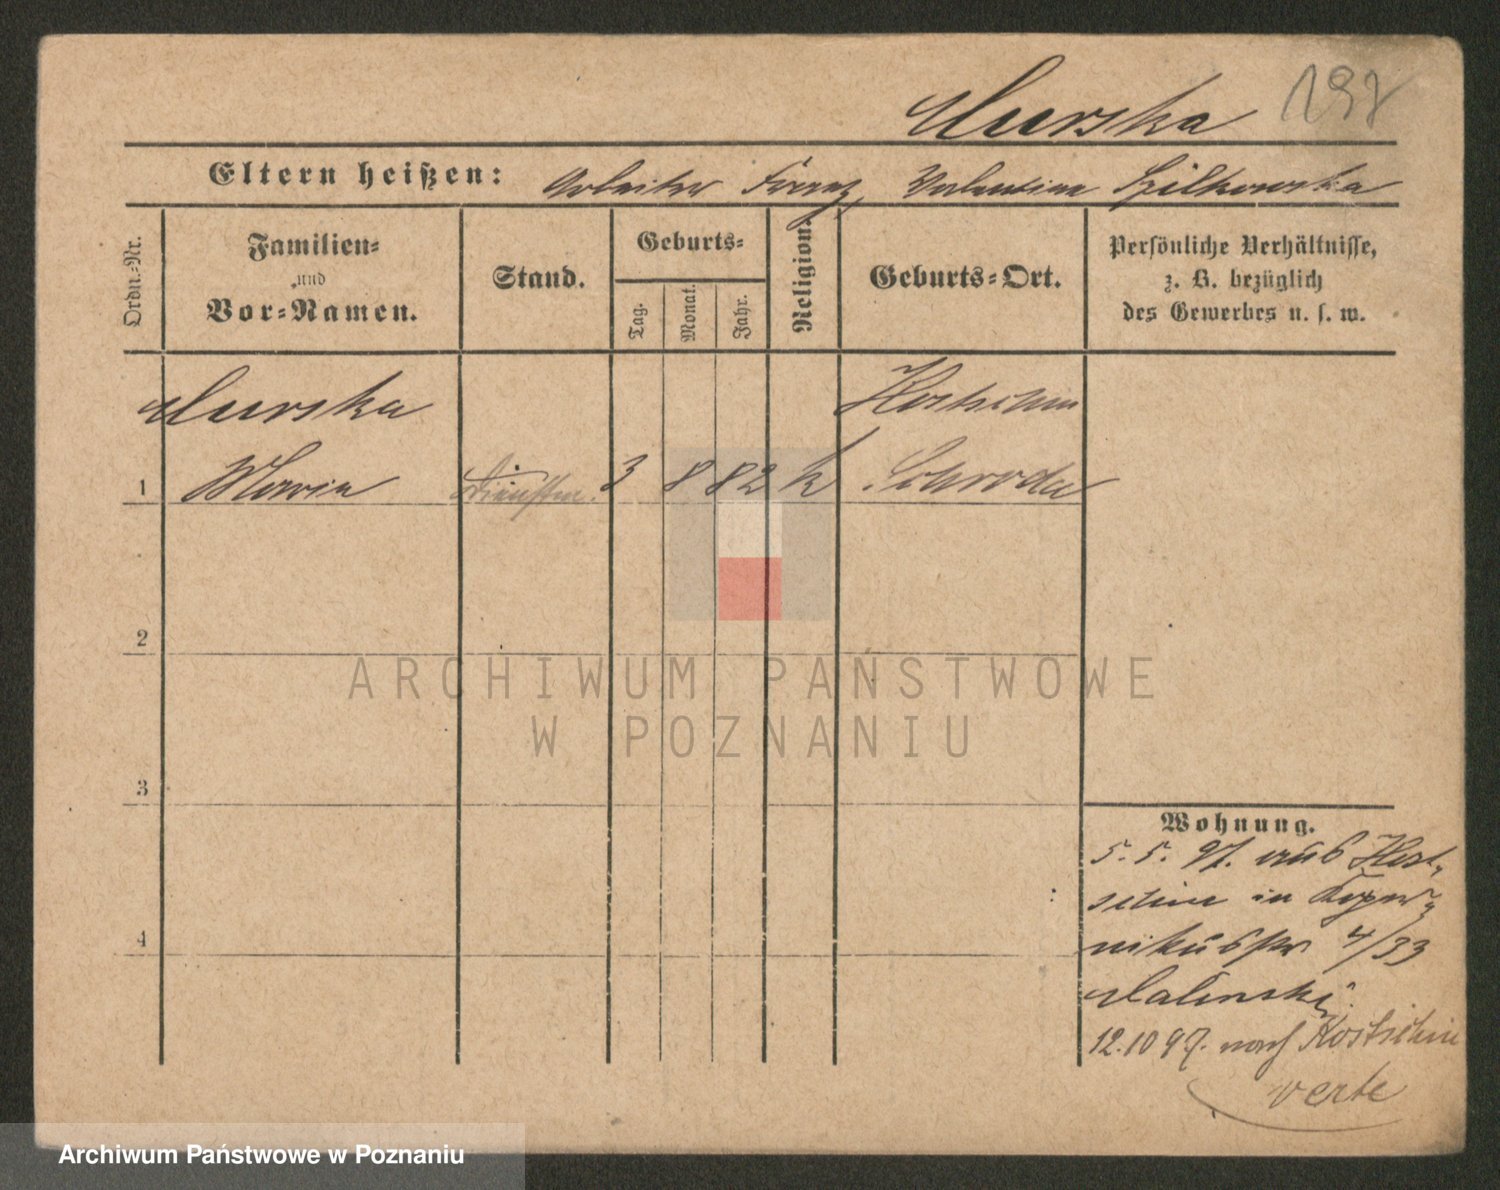 Murska
197
Eltern heißen: Arbeiter Franz, Valentine Szilkowska
Ordn.-Nr.
Familien-
und
Vor-Namen.
Stand.
Geburts-
Tag.
Monat.
Jahr.
Religion.
Geburts-Ort.
Persönliche Verhältnisse,
z. B. bezüglich
des Gewerbes u. s. w.
Murska
Kostschin
1 Maria Dienstm. 3 8 82 k Schroda
2
3
4
Wohnung.
5. 5. 97. aus Kost-
schin in Koper-
nikusstr 4/33
Malinski.
12.10 97. nach Kostschin
verte
ARCHIWUM PAŃSTWOWE
W POZNANIU
Archiwum Państwowe w Poznaniu